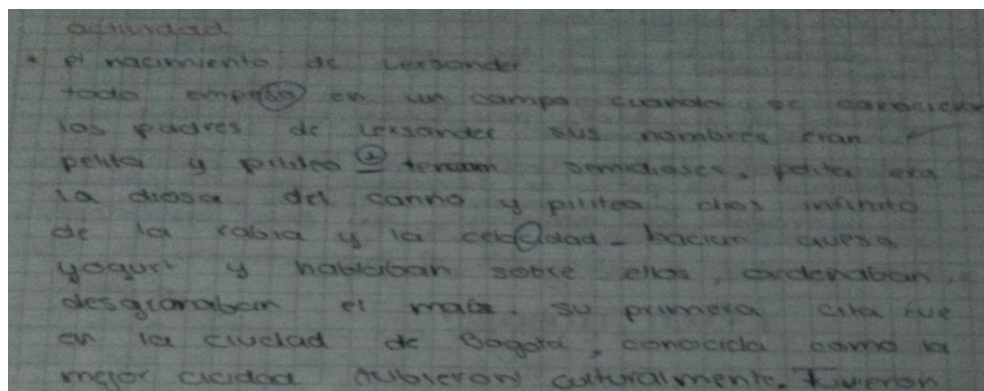 actividad
* el nacimiento de Lexsander
todo empeso en un campo cuando se conocieron
los padres de Lexsander sus nombres eran
pelita y piliteo tenian semidioses, pelita era
la diosa del carino y piliteo dios infinito
de la rabia y la celedad - hacian queso
yogurt y hablaban sobre ellos, ordenaban
desgranaban el maiz. su primera cita fue
en la ciudad de Bogotá, conocida como la
mejor culturalmente. Tuvieron